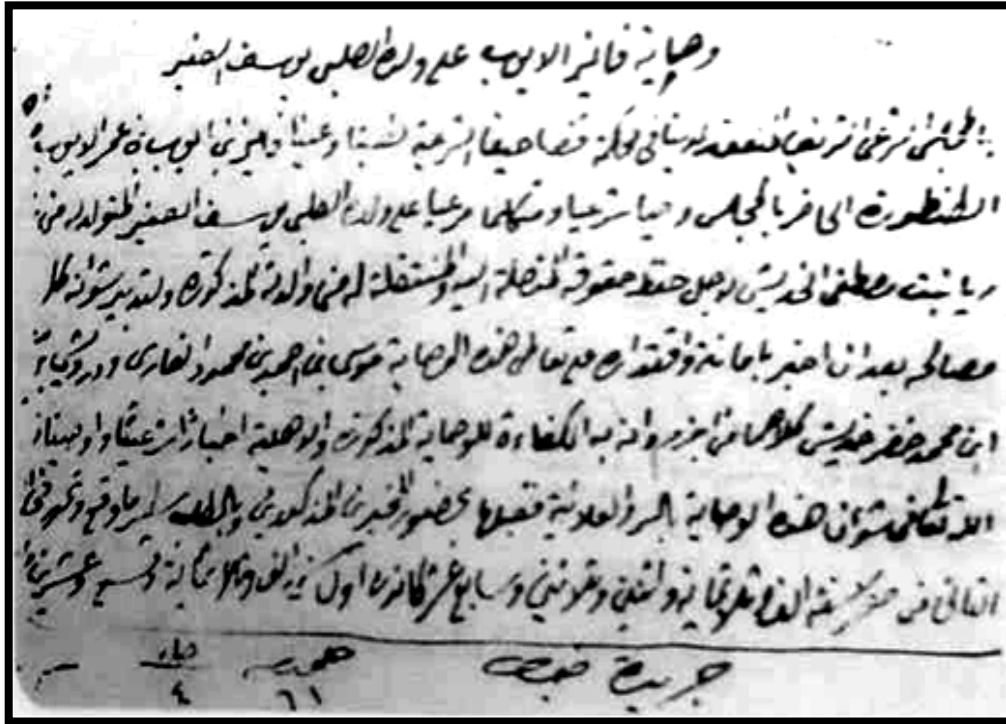 وصاية فائز الايوب على ولده الصلبي يوسف الصغير
بالمجلس الشرعي الشريف المنعقد لدينا في محكمة قضا حيفا الشرعية نصبنا وعينا فايز بن ايوب بن عمر الايوب
الحاضر بالمجلس وصيا شرعيا ومتكلما مرعيا على ولده الصلبي يوسف الصغير المتولد له من
ريا بنت مصطفى الخديش لاجل حفظ حقوقه المتصلة اليه والمنتقلة له من والدته المذكورة ولتدبير شوانه كل
مصالحه بعد ان اخبر بامانته واقتداره على تعاطي هذه الوصاية موسى بن احمد بن محمود الغارى ودرويش
ابن محمد خضر خديش كلاهما من اجزم وانه به الكفاءة للوصاية المذكورة والاهلية اخبارا شرعيا واوصيناه
الله تعالى بشوان هذه الوصاية بالسر والعلانية فقبلها بحضور المخبرين المذكورين وبالطلب سطر ما وقع وتحرر في
الثانى من سنة الف وثلاثماية واثنين وثلاثين وسابع عشر كانون اول سنة الف وثلاثماية وتسع وعشرين
جريدة ضبط
٦١
٤